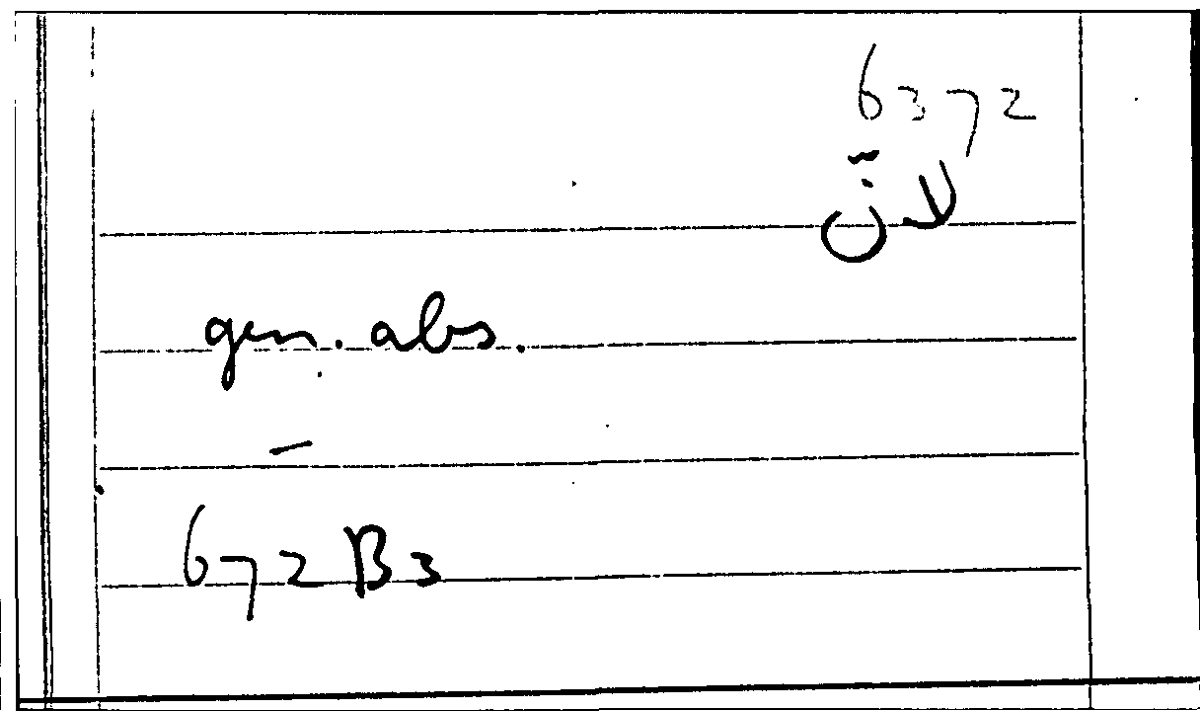 6372
لانّ
gen. abs.
–
672 B3